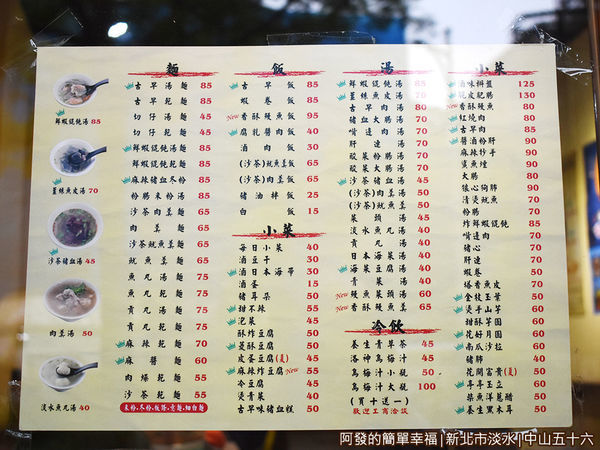 鮮蝦餛飩湯 85
薑絲魚皮湯 70
沙茶豬血湯 45
肉羹湯 50
淡水魚丸湯 40
麵
古早湯麵 85
古早乾麵 85
切仔湯麵 45
切仔乾麵 45
鮮蝦餛飩湯麵 85
鮮蝦餛飩乾麵 85
麻辣豬血冬粉 85
粉腸米粉湯 85
沙茶肉羹麵 65
肉羹麵 65
沙茶魷魚羹麵 65
魷魚羹麵 65
魚丸湯麵 75
魚丸乾麵 75
貢丸湯麵 75
貢丸乾麵 75
麻辣乾麵 70
麻醬麵 60
肉燥乾麵 55
沙茶乾麵 55
米粉.冬粉.粄條.意麵.細白麵
飯
古早飯 85
蝦卷飯 85
New 香酥鰻魚飯 95
腐乳醬肉飯 90
滷肉飯 30
(沙茶)魷魚羹飯 65
(沙茶)肉羹飯 65
豬油拌飯 25
白飯 15
小菜
每日小菜 40
滷豆干 30
滷日本海帶 30
滷蛋 15
豬耳朵 50
甜不辣 55
泡菜 45
酥炸豆腐 50
菱酥豆腐 50
皮蛋豆腐(夏) 45
麻辣炸豆腐 New 55
冷豆腐 45
燙青菜 40
古早味豬血糕 50
湯
鮮蝦餛飩湯 85
薑絲魚皮湯 70
古早肉湯 80
豬血大腸湯 70
嘴邊肉湯 70
肝連湯 70
酸菜粉腸湯 70
酸菜大腸湯 70
沙茶豬血湯 45
(沙茶)肉羹湯 50
(沙茶)魷魚羹 50
菜頭湯 45
淡水魚丸湯 40
貢丸湯 40
日本海菜湯 40
海菜豆腐湯 40
青菜湯 40
New 鰻魚菜頭湯 65
New 鰻魚清湯 60
冷飲
養生青草茶 45
洛神烏梅汁 45
烏梅汁小瓶 45
烏梅汁大瓶 100
(買十送一)
歡迎工商洽談
小菜
滷味拼盤 125
脆皮肥腸 130
New 香酥鰻魚 80
紅燒肉 80
古早肉 80
醬滷粉肝 90
麻辣炒手 90
蜜魚燻 90
大腸 80
猿心狗肺 90
清燙魷魚 80
粉腸 70
炸鮮蝦餛飩 85
嘴邊肉 70
豬心 70
肝連 70
蝦卷 70
塔香魚皮 70
金牧玉葉 50
燙手山芋 50
甜酥芋圓 50
花好月圓 50
南瓜沙拉 50
豬肺 40
花開富貴(夏) 50
亭亭玉立 60
柴魚洋蔥醋 50
養生黑木耳 50
阿發的簡單幸福|新北市淡水|中山五十六